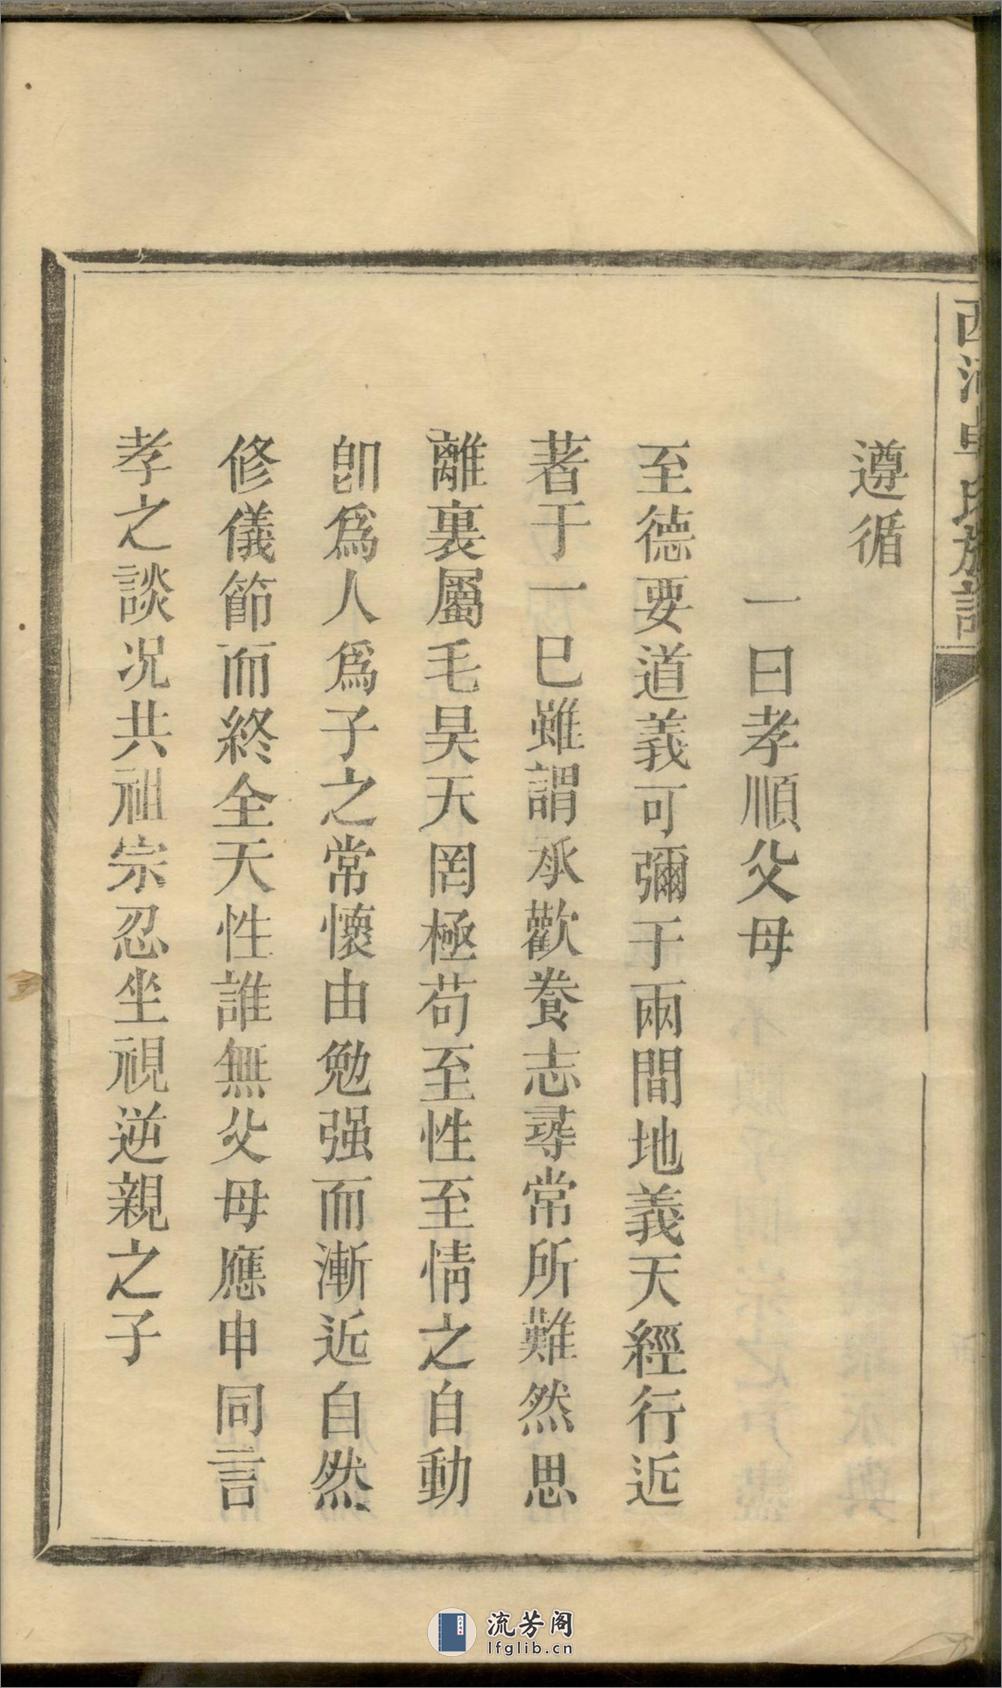 西河卓氏族譜
遵循
一曰孝順父母
至德要道義可彌于兩間地義天經行近
著于一已雖謂承歡養志尋常所難然思
離裏屬毛昊天罔極苟至性至情之自動
卽爲人爲子之常懷由勉强而漸近自然
修儀節而終全天性誰無父母應申同言
孝之談況共祖宗忍坐視逆親之子
流芳阁
lfglib.cn